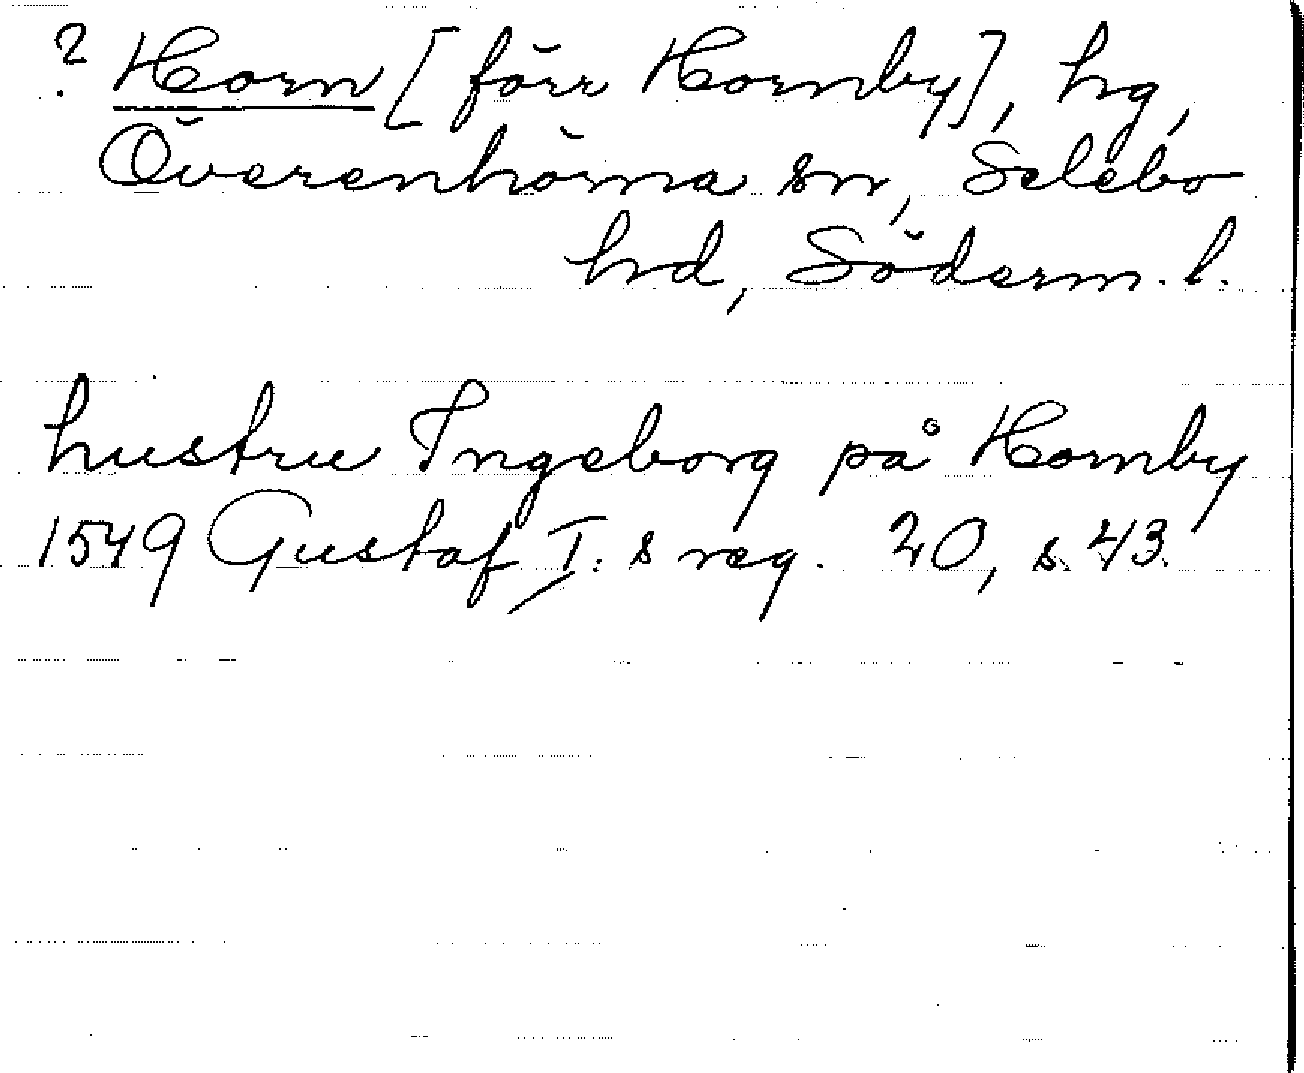 ? Horn [förr Hornby], hg,
Överenhörna sn, Selebo
hd, Söderm. l.
hustru Ingeborg på Hornby
1549 Gustaf I:s reg. 20, s. 43.